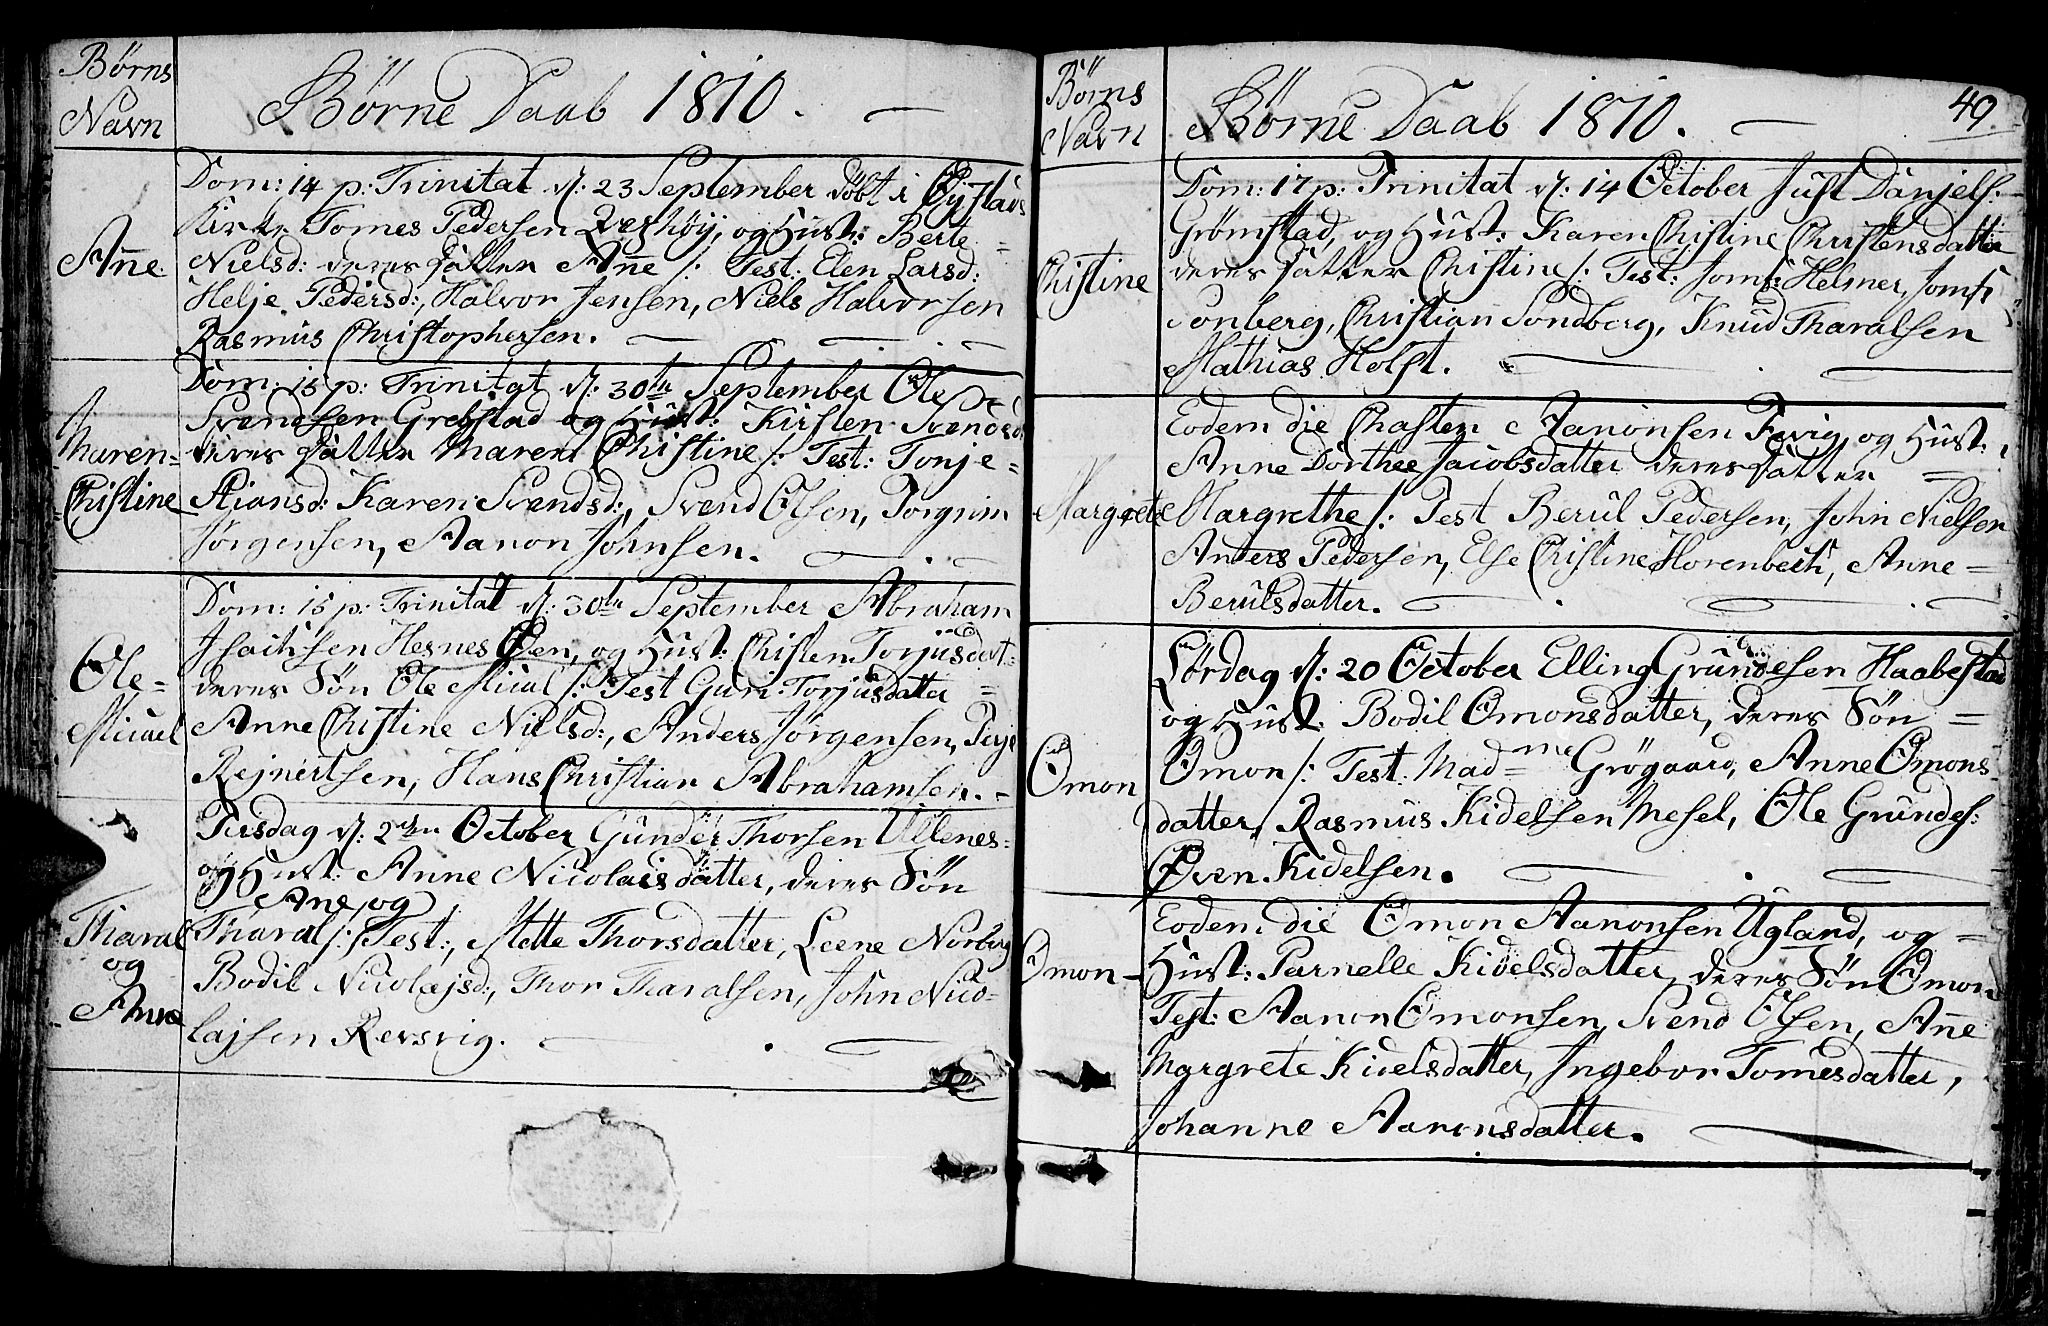 Børns
Navn
Børne Daab 1810. —
Anne
Dom: 14 p: Trinitat d: 23 September døbt i Øjestads
Kirke Tomes Pedersen og Hust: Berte =
Nielsd: deres Datter Anne /: Test: Elen Larsd:
Helje Pedersd:, Halvor Jensen, Niels Halvorsen
Rasmus Christophersen. —
Maren=
Christine
Dom: 15 p: Trinitat d: 30te September Ole
Svendsen Grefstad og Hust: Kirsten Svendsd:
deres Datter Maren Christine /: Test: Tonje=
Stiansd: Karen Svendsd:, Svend Olsen, Torgrim
Jørgensen, Aanon Johnsen.
Ole=
Micael
Dom: 15 p: Trinitat d: 30te September Abraham
Isachsen Hesnes Øen, og Hust: Christen Torjusdatt:
deres Søn Ole Micael /: Test Guri Torjusdatter =
Anne Christine Nielsd:, Anders Jørgensen, Terje
Rejnertsen, Hans Christian Abrahamsen. -
Tharal
og
Anne
Tirsdag d: 2den October Gunder Thorsen Ullenes=
og Hust: Anne Nicolaisdatter, deres Søn
Ane, og
Tharal /: Test:, Mette Thorsdatter, Leene Norberg
Bodil Nicolajsd:, Thor Tharalsen, John Nico-
lajsen Revsvig.
Børns
Navn
Børne Daab 1810. —
49.
Christine
Dom: 17 p: Trinitat d: 14 October Just Danjels:
Grømstad, og Hust: Karen Christine Christensdatter
deres Datter Christine /: Test: Jomf: Helmer, Jomf:
Sonberg, Christian Sondberg, Knud Tharalsen
Mathias Holst.
Margrete
Eodem die Chasten Aanonsen Fevig og Hust:
Anne Dorthee Jacobsdatter deres Datter
Margrethe /: Test Berul Pedersen, John Nielsen
Anders Pedersen, Else Christine Horenbech, Anne=
Berulsdatter.
Omon
Lørdag d: 20 October Elling Grundesen Haabestad
og Hust: Bodil Omonsdatter, deres Søn =
Omon /: Test: Madme Grøgaard, Anne Omons-
datter, Rasmus Kidelsen Mesel, Ole Grundes:
Even Kidelsen.
Omon
Eodem die Omon Aanonsen Ugland, og =
Hust: Pernelle Kidelsdatter deres Søn Omon
Test: Aanon Omonsen, Svend Olsen, Anne
Margrete Kidelsdatter, Ingebor Tomesdatter,
Johanne Aanonsdatter.